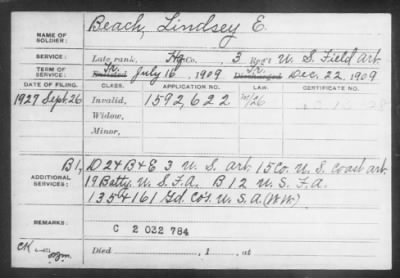 Beach, Lindsey E.
NAME OF SOLDIER:
SERVICE: Late rank, Hq Co., 3 Reg't U. S. Field Art.
TERM OF SERVICE: Enlisted Fr. July 16, 1909 Discharged To. Dec. 22, 1909
DATE OF FILING. CLASS. APPLICATION NO. LAW. CERTIFICATE NO.
1927 Sept. 26 Invalid, 1592,622
Widow,
Minor,
B1, D2 + B + E 3 U. S. Art. 15 Co. U. S. Coast Art.
ADDITIONAL SERVICES: 19 Batty. U. S. F. A. B 12 U. S. F. A.
135 + 161 Gd. Cos. U. S. A. (W.W.)
REMARKS: C 2 032 784
CK
Died , 1 , at